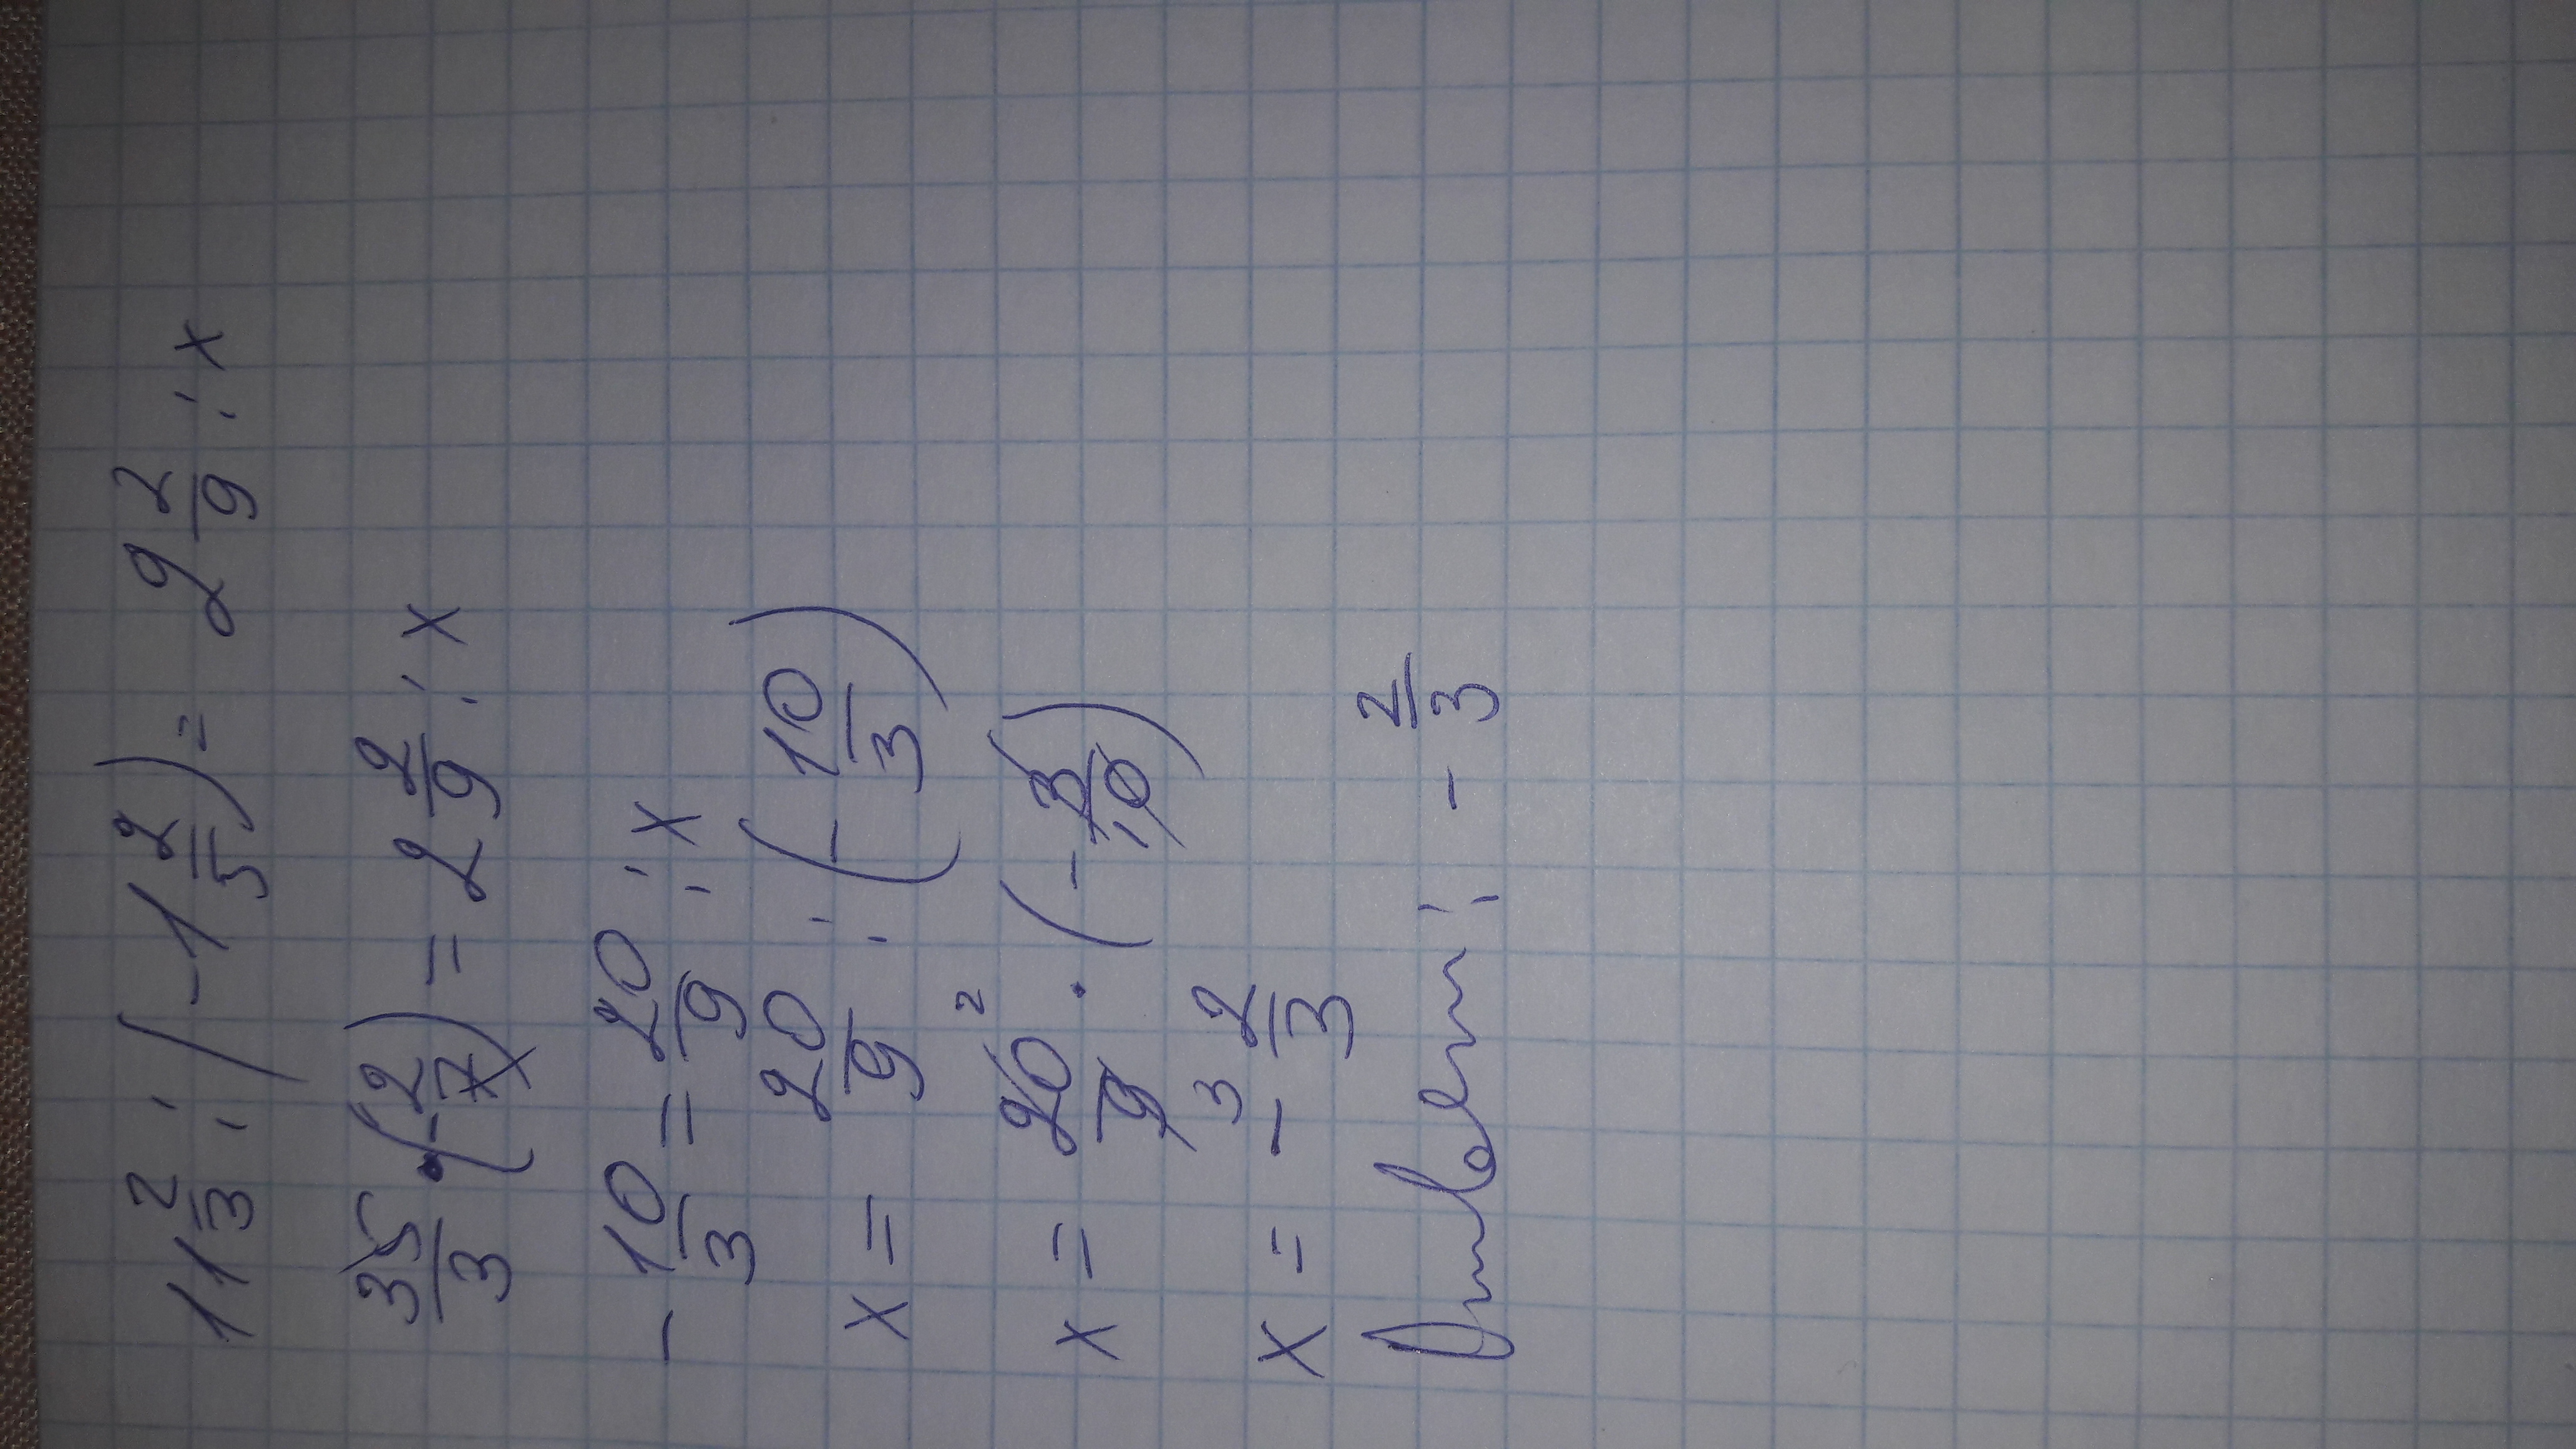 11 2/3 : (-1 2/5) = 2 2/9 : x
35/3 · (-2/7) = 2 2/9 : x
-10/3 = 20/9 : x
x = 20/9 : (-10/3)
x = 20/9 · (-3/10) 2 3
x = -2/3
Ответ: -2/3